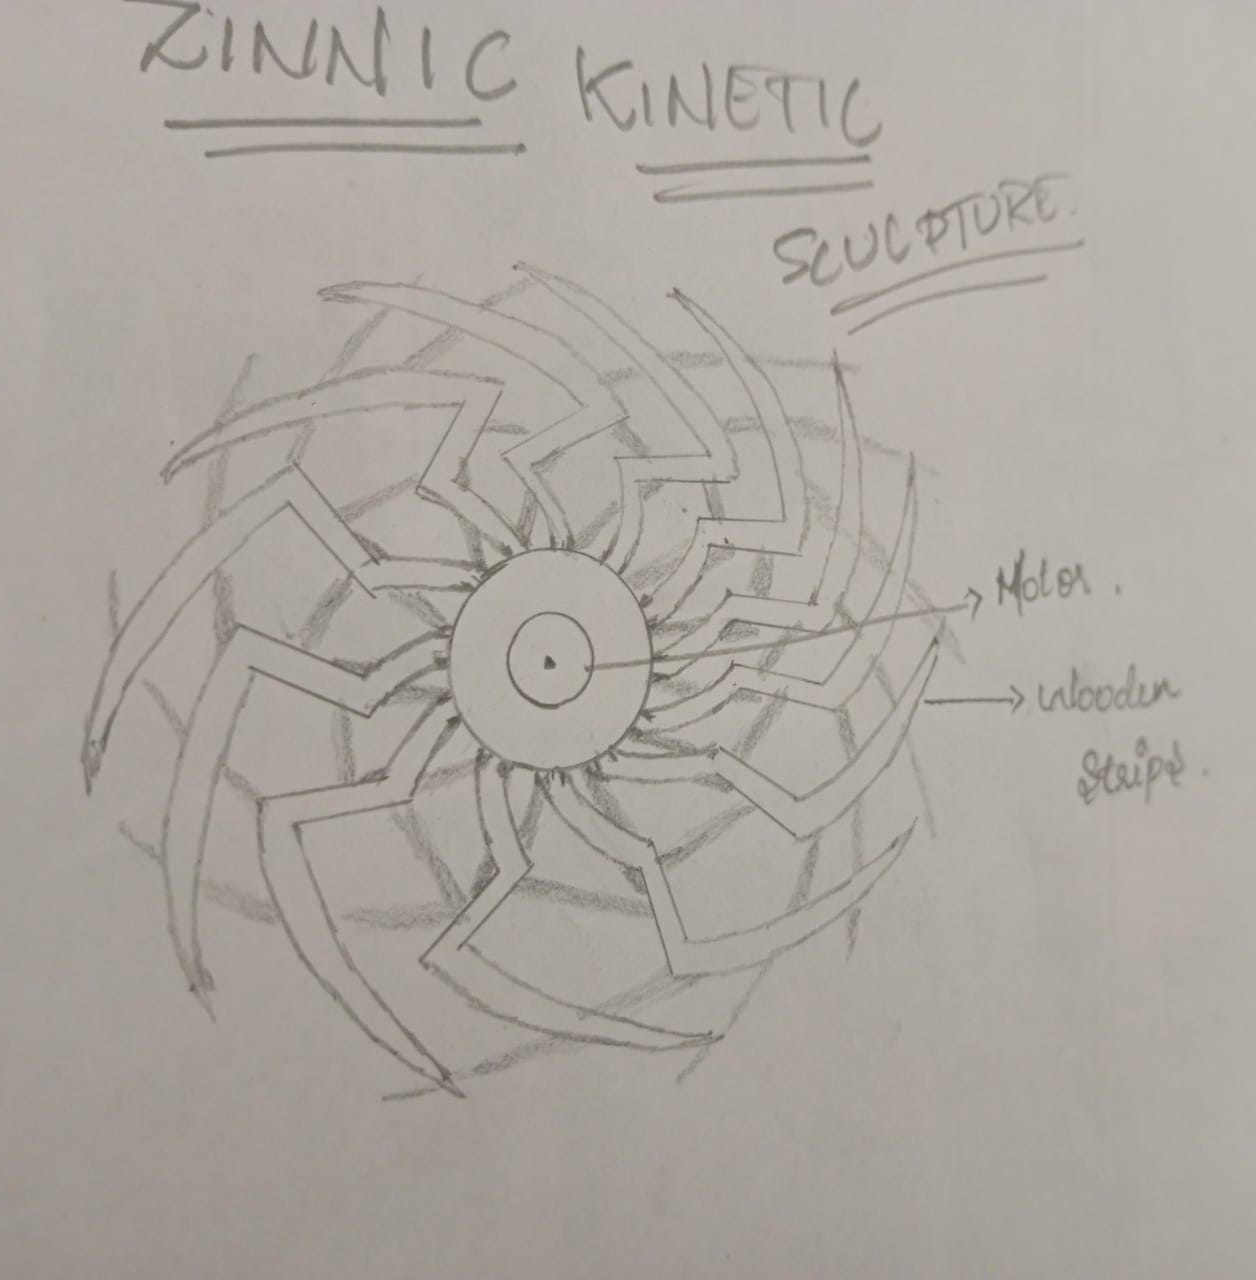 ZINNIC KINETIC
SCULPTURE.
Motor.
Wooden
Strips.